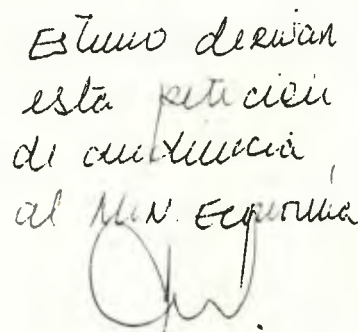 Estimo derivar
esta petición
de audiencia
al MIN. Economía